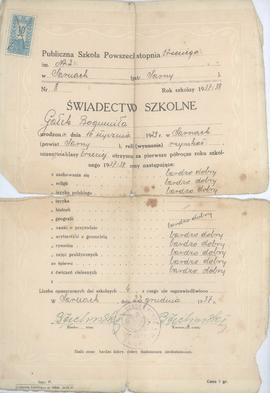 Publiczna Szkoła Powszechna stopnia trzeciego
im. № 2
w Sarnach pow. Sarny
Nr 8 Rok szkolny 1937/38
ŚWIADECTWO SZKOLNE
Gałek Bogumiła
urodzona dnia 10 stycznia w Sarnach
(powiat Sarny), religii (wyznania) rzymskok.
klasy trzeciej otrzymuje za pierwsze półrocze roku szkol-
nego 1937/38 oceny następujące:
z zachowania się bardzo dobry
z religii bardzo dobry
z języka polskiego bardzo dobry
z języka
z historii
z geografii
z nauki o przyrodzie bardzo dobry
z arytmetyki z geometrią bardzo dobry
z rysunku bardzo dobry
z zajęć praktycznych bardzo dobry
ze śpiewu bardzo dobry
z ćwiczeń cielesnych bardzo dobry
Liczba opuszczonych dni szkolnych 6 z czego nie usprawiedliwiono
w Sarnach dn. 22 grudnia 1937 r.
Skala ocen: bardzo dobry, dobry, dostateczny, niedostateczny.
Cena 5 gr.